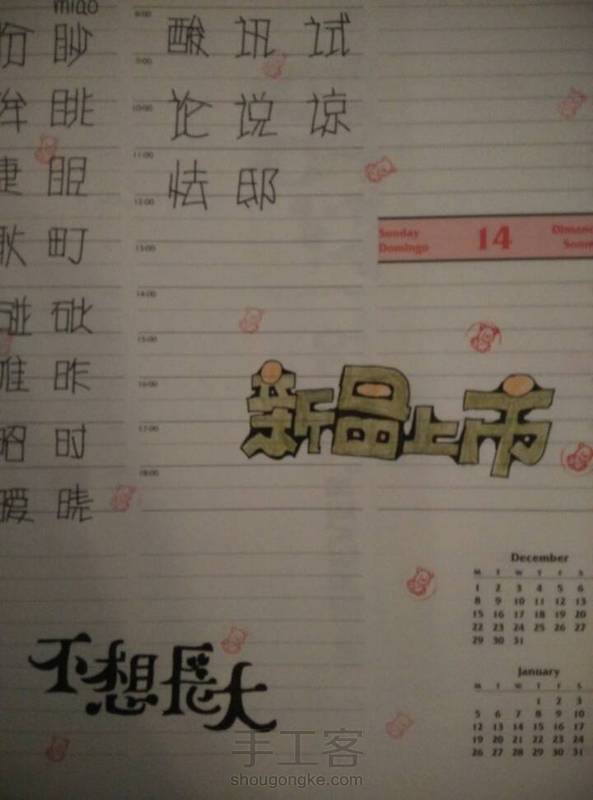 miao
眇
眸 眺
睫 眼
耿 町
碰 砒
准 昨
昭 时
暧 晓
8:00
9:00
10:00
11:00
12:00
13:00
14:00
15:00
16:00
17:00
18:00
酸 讯 试
论 说 谅
怯 邸
Sunday
Domingo
14
新品上市
不想長大
December
M T W T F S
1 2 3 4 5 6
8 9 10 11 12 13
15 16 17 18 19 20
22 23 24 25 26 27
29 30 31
January
M T W T F S
1 2 3
5 6 7 8 9 10
12 13 14 15 16 17
19 20 21 22 23 24
26 27 28 29 30 31
手工客
shougongke.com